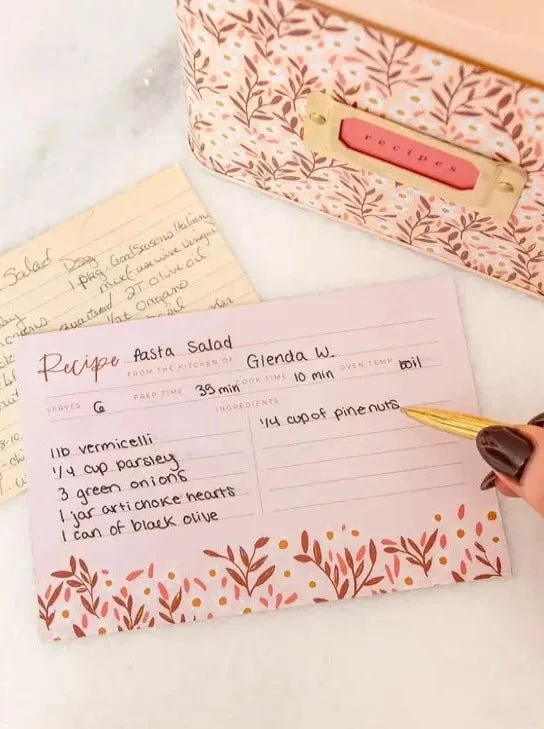 recipes
Salad
Dsg
1 pkg Good Seasons Italian
mix (use wine vinegar
2T olive oil
Recipe Pasta Salad
FROM THE KITCHEN OF Glenda W.
SERVES 6 PREP TIME 35 min COOK TIME 10 min OVEN TEMP boil
INGREDIENTS
1 lb vermicelli
1/4 cup parsley
3 green onions
1 jar artichoke hearts
1 can of black olive
1/4 cup of pinenuts